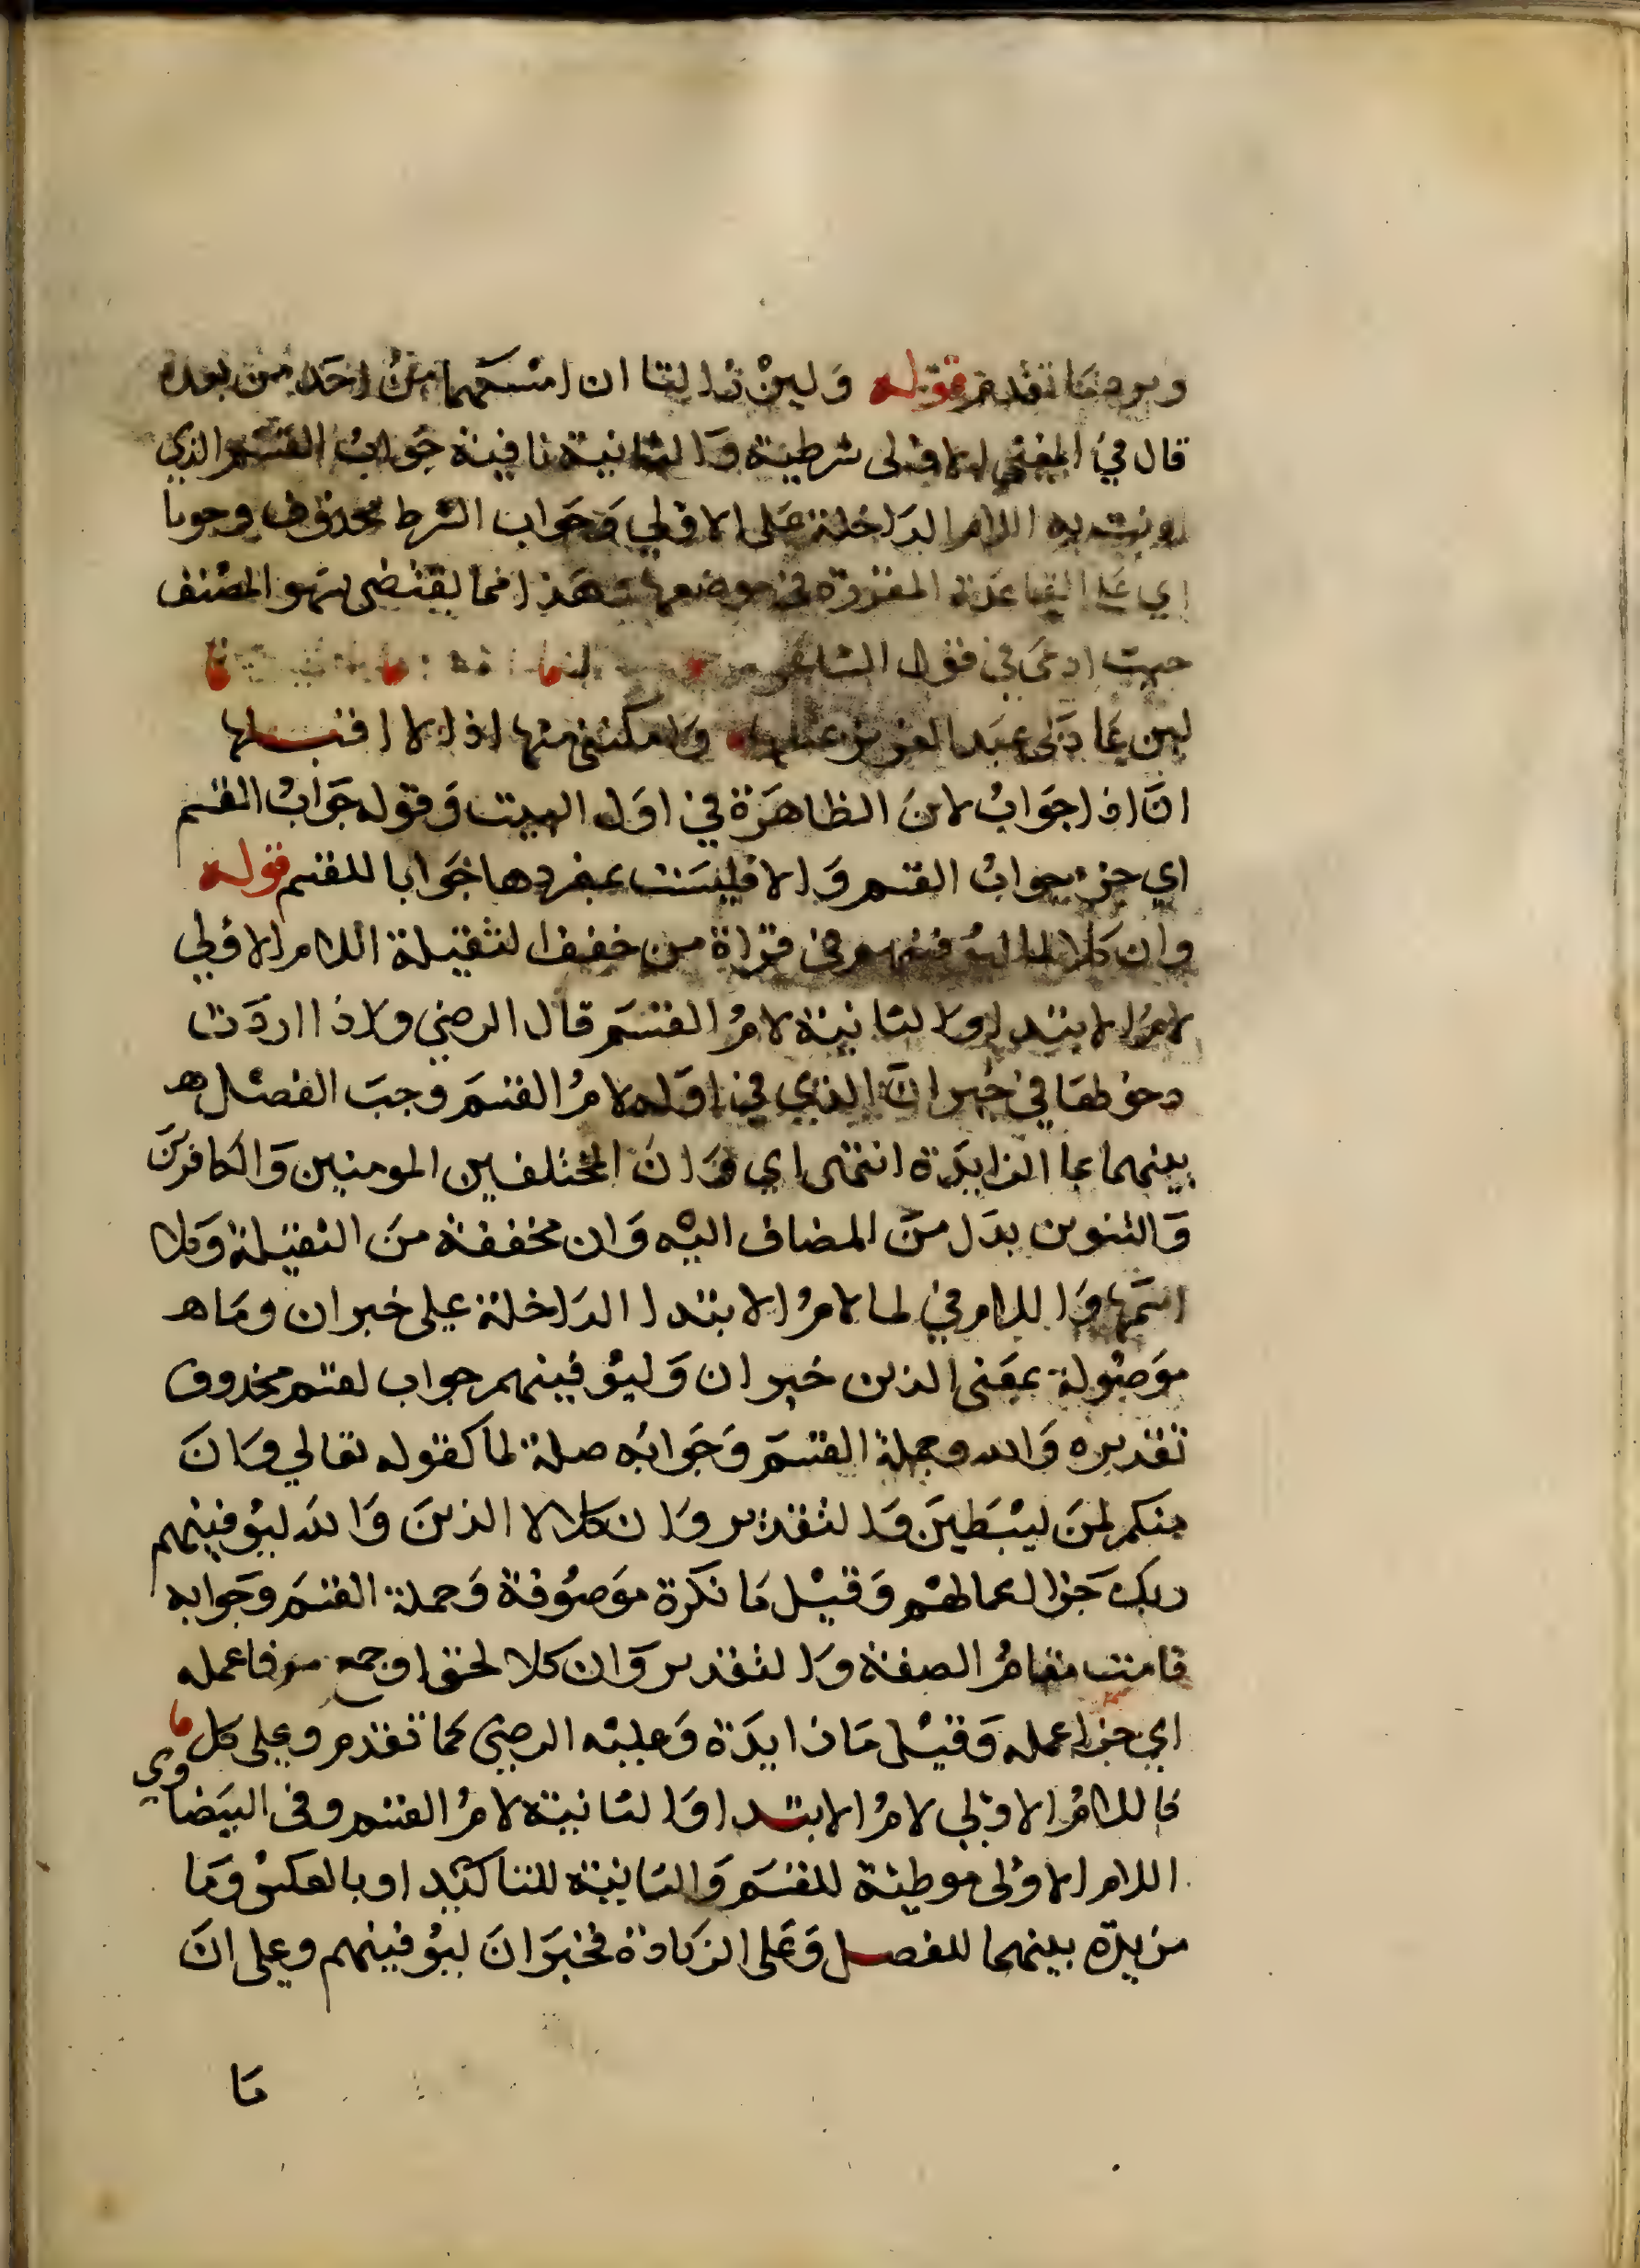 ويرد ما تقدم قوله ولين زالتا ان امسكهما من احد من بعده
قال في المغني الاولى شرطية والثانية نافية جواب القسم الذي
اللام الداخلة على الاولي وجواب الشرط محذوف وجوبا
اي على القاعدة المقررة في موضعها وهذا مما يقتضى سهو المصنف
حيث ادعى في قول الشاعر
لين عاد لى عبد العزيز بمثلها وامكننى منها اذا لا اقيلها
ان اذا جواب لان الظاهرة في اول البيت وقوله جواب القسم
اي جزء جواب القسم والا فليست بمفردها جوابا للقسم قوله
وان كلا لما ليوفينهم في قراة من خفف لثقيلة اللام الاولي
لام الابتدا والثانية لام القسم قال الرضي ولاذا اردت
دخولها في خبر ان الذي في اوله لام القسم وجب الفصل هـ
بينهما بما الزايدة انتهى اي وان المختلفين المومنين والكافرين
والتنوين بدل من المضاف اليه وان مخففة من الثقيلة وكلا
اسمها واللام في لما لام الابتدا الداخلة على خبر ان وما هـ
موصولة بمعنى الذين خبر ان وليوفينهم جواب لقسم محذوف
تقديره والله وجملة القسم وجوابه صلة لما كقوله تعالي وان
منكم لمن ليبطين والتقدير وان كلا لا الذين والله ليوفينهم
ربك جزا اعمالهم وقيل ما نكرة موصوفة وجملة القسم وجوابه
قامت مقام الصفة والتقدير وان كلا لخلق او جمع موفا عمله
اي جزا عمله وقيل ما زايدة وعليه الرضي كما تقدم وعلى كل ما
فاللام الاولي لام الابتدا والثانية لام القسم وفى البيضاوي
اللام الاولى موطية للقسم والثانية للتاكيد او بالعكس وما
مزيدة بينهما للفصل وعلى الزيادة فخبر ان ليوفينهم وعلى ان
ما